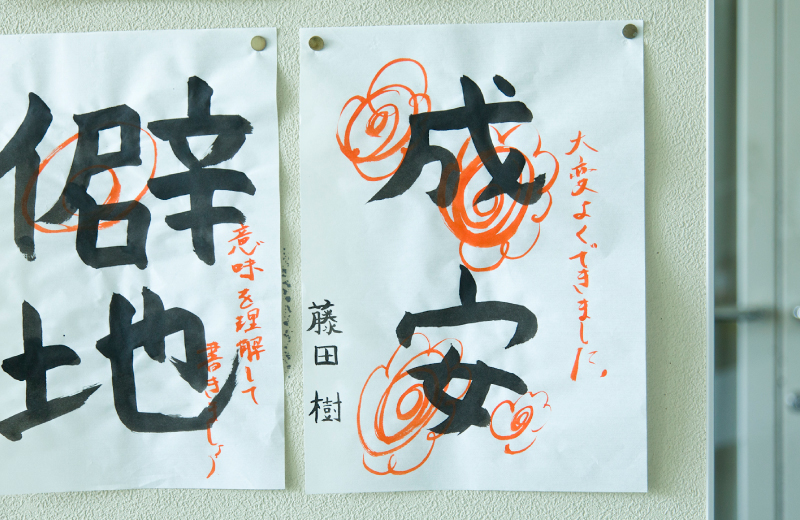 大変よくできました。
成安
藤田 樹
僻地
意味を理解して
書きましょう